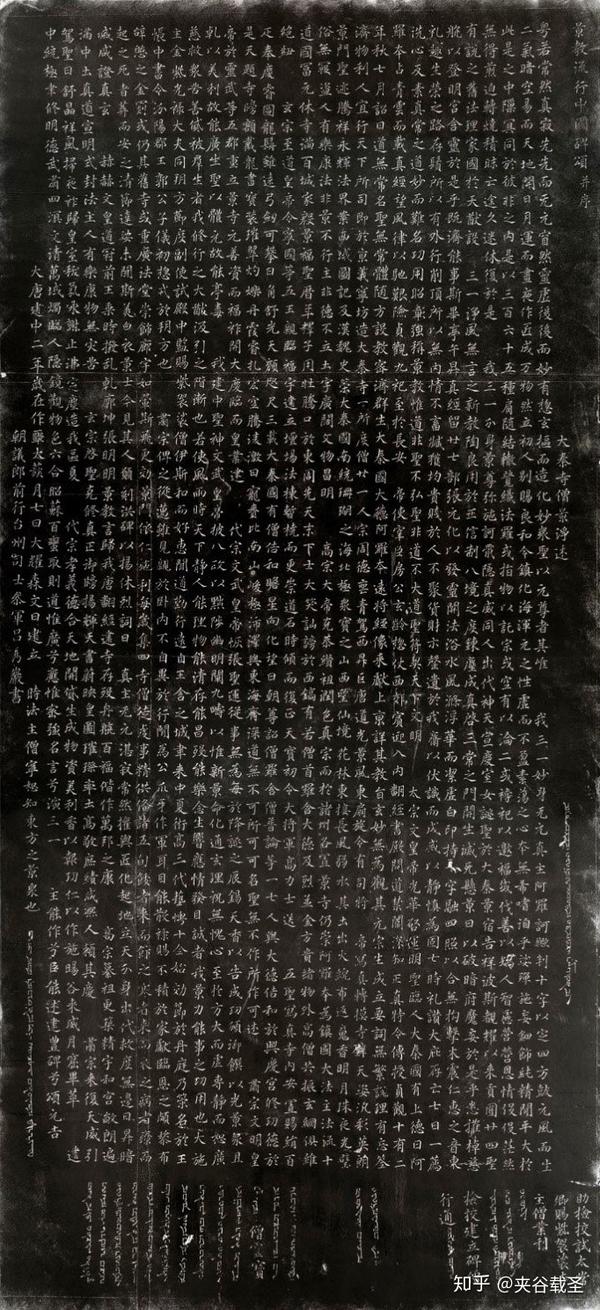 景教流行中國碑頌并序
大秦寺僧景淨述
粵若常然真寂先先而无元窅然靈虛後後而妙有惣玄樞而造化妙眾聖以元尊者其唯我三一妙身无元真主阿羅訶歟判十字以定四方鼓元風而生
二氣暗空易而天地開日月運而晝夜作匠成万物然立初人別賜良和令鎮化海渾元之性虛而不盈素蕩之心本無希嗜洎乎娑殫施妄鈿飾純精閒平大於
此是之中隟冥同於彼非之內是以三百六十五種肩隨結轍競織法羅或指物以託宗或空有以淪二或禱祀以邀福或伐善以矯人智慮營營恩情役役茫然
無得煎迫轉燒積昧亡途久迷休復於是我三一分身景尊彌施訶戢隱真威同人出代神天宣慶室女誕聖於大秦景宿告祥波斯睹耀以來貢圓廿四聖
有說之舊法理家國於大猷設三一淨風無言之新教陶良用於正信制八境之度鍊塵成真啟三常之門開生滅死懸景日以破暗府魔妄於是乎悉摧棹慈
航以登明宮含靈於是乎既濟能事斯畢亭午昇真經留廿七部張元化以發靈關法浴水風滌浮華而潔虛白印持十字融四照以合無拘擊木震仁惠之音東
礼趣生榮之路存鬚所以有外行削頂所以無內情不畜臧獲均貴賤於人不聚貨財示罄遺於我齋以伏識而成戒以靜慎為固七時礼讚大庇存亡七日一薦
洗心反素真常之道妙而難名功用昭彰強稱景教惟道非聖不弘聖非道不大道聖符契天下文明太宗文皇帝光華啟運明聖臨人大秦國有上德曰阿
羅本占青雲而載真經望風律以馳艱險貞觀九祀至於長安帝使宰臣房公玄齡惣仗西郊賓迎入內翻經書殿問道禁闈深知正真特令傳授貞觀十有二
年秋七月詔曰道無常名聖無常體隨方設教密濟群生大秦國大德阿羅本遠將經像來獻上京詳其教旨玄妙無為觀其元宗生成立要詞無繁說理有忘筌
濟物利人宜行天下所司即於京義寧坊造大秦寺一所度僧廿一人宗周德喪青駕西昇巨唐道光景風東扇旋令有司將帝寫真轉摸寺壁天姿汎彩英朗
景門聖迹騰祥永輝法界案西域圖記及漢魏史策大秦國南統珊瑚之海北極眾寶之山西望仙境花林東接長風弱水其土出火綄布返魂香明月珠夜光璧
俗無寇盜人有樂康法非景不行主非德不立土宇廣闊文物昌明高宗大帝克恭纘祖潤色真宗而於諸州各置景寺仍崇阿羅本為鎮國大法主法流十
道國富元休寺滿百城家殷景福聖曆年釋子用壯騰口於東周先天末下士大笑訕謗於西鎬有若僧首羅含大德及烈並金方貴緒物外高僧共振玄綱俱維
絕紐玄宗至道皇帝令寧國等五王親臨福宇建立壇場法棟暫橈而更崇道石時傾而復正天寶初令大將軍高力士送五聖寫真寺內安置賜絹百
疋奉慶睿圖龍髯雖遠弓劍可攀日角舒光天顏咫尺三載大秦國有僧佶和瞻星向化望日朝尊詔僧羅含僧普論等一七人與大德佶和於興慶宮修功德於
是天題寺牓額戴龍書寶裝璀翠灼爍丹霞睿扎宏空騰凌激日寵賚比南山峻極沛澤與東海齊深道無不可所可可名聖無不作所作可述肅宗文明皇
帝於靈武等五郡重立景寺元善資而福祚開大慶臨而皇業建代宗文武皇帝恢張聖運從事無為每於降誕之辰錫天香以告成功頒御饌以光景眾且
乾以美利故能廣生聖以體元故能亭毒我建中聖神文武皇帝披八政以黜陟幽明闡九疇以惟新景命化通玄理祝無愧心至於方大而虛專靜而恕廣
慈救眾苦善貸被群生者我修行之大猷汲引之階漸也若使風雨時天下靜人能理物能清存能昌歿能樂念生響應情發目誠者我景力能事之功用也大施
主金紫光祿大夫同朔方節度副使試殿中監賜紫袈裟僧伊斯和而好惠聞道勤行遠自王舍之城聿來中夏術高三代藝博十全始効節於丹庭乃策名於王
帳中書令汾陽郡王郭公子儀初惣戎於朔方也肅宗俾之從邁雖見親於臥內不自異於行間為公爪牙作軍耳目能散祿賜不積於家獻臨恩之頗黎布
辭憩之金罽或仍其舊寺或重廣法堂崇飾廊宇如翬斯飛更効景門依仁施利每歲集四寺僧徒虔事精供備諸五旬餧者來而飰之寒者來而衣之病者療而
起之死者葬而安之清節達娑未聞斯美白衣景士今見其人願刻洪碑以揚休烈詞曰真主无元湛寂常然權輿匠化起地立天分身出代救度無邊日昇暗
滅咸證真玄赫赫文皇道冠前王乘時撥亂乾廓坤張明明景教言歸我唐翻經建寺存歿舟航百福偕作萬邦之康高宗纂祖更築精宇和宮敞朗遍
滿中土真道宣明式封法主人有樂康物無災苦玄宗啟聖克修真正御牓揚輝天書蔚映皇圖璀璨率土高敬庶績咸熙人賴其慶肅宗來復天威引
駕聖日舒晶祥風掃夜祚歸皇室祅氛永謝止沸定塵造我區夏代宗孝義德合天地開貸生成物資美利香以報功仁以作施暘谷來威月窟畢萃建
中統極聿修明德武肅四溟文清萬域燭臨人隱鏡觀物色六合昭蘇百蠻取則道惟廣兮應惟密強名言兮演三一主能作兮臣能述建豐碑兮頌元吉
大唐建中二年歲在作噩太蔟月七日大耀森文日建立時法主僧寧恕知東方之景眾也
朝議郎前行台州司士參軍呂秀巖書
助檢校試太常
卿賜紫袈裟
主僧業利
檢校建立碑
行通
知乎 @夹谷载圣